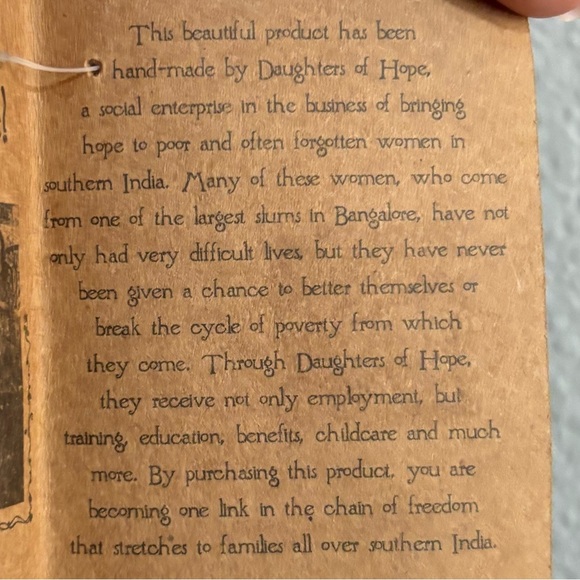 This beautiful product has been
hand-made by Daughters of Hope,
a social enterprise in the business of bringing
hope to poor and often forgotten women in
southern India. Many of these women, who come
from one of the largest slums in Bangalore, have not
only had very difficult lives, but they have never
been given a chance to better themselves or
break the cycle of poverty from which
they come. Through Daughters of Hope,
they receive not only employment, but
training, education, benefits, childcare and much
more. By purchasing this product, you are
becoming one link in the chain of freedom
that stretches to families all over southern India.